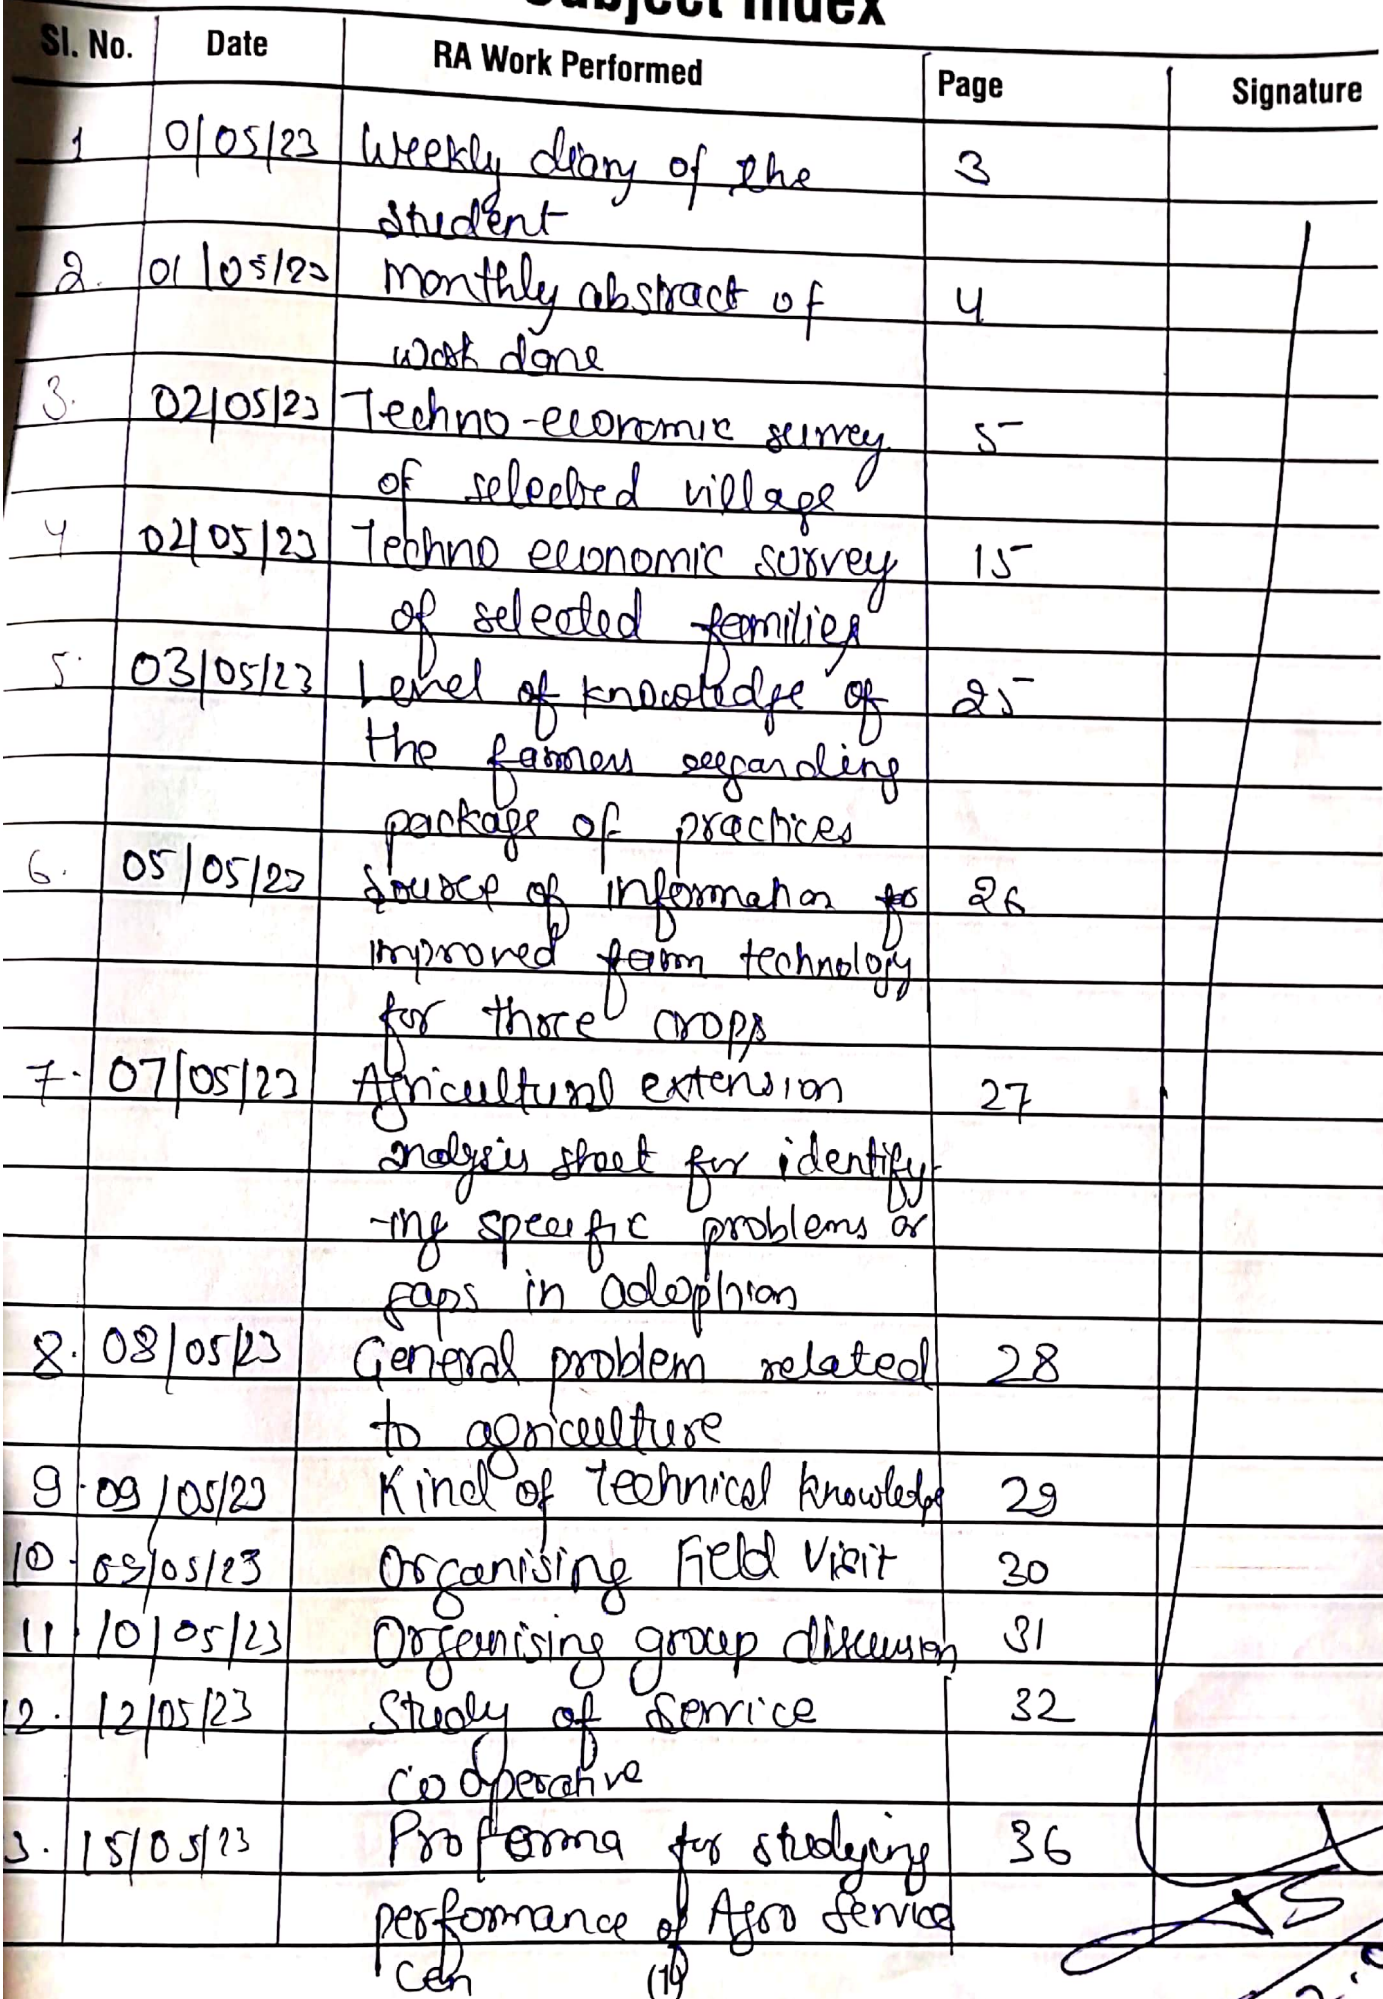 Subject Index
Sl. No. Date RA Work Performed Page Signature
1 0/05/23 Weekly diary of the 3
student
2. 01/05/23 Monthly abstract of 4
work done
3. 02/05/23 Techno-economic survey 5
of selected village
4 02/05/23 Techno economic survey 15
of selected families
5. 03/05/23 Level of knowledge of 25
the farmers regarding
package of practices
6. 05/05/23 Source of information for 26
improved farm technology
for three crops
7. 07/05/23 Agricultural extension 27
analysis sheet for identify-
-ing specific problems or
gaps in adophion
8. 08/05/23 General problem related 28
to agriculture
9. 09/05/23 Kind of technical knowledge 29
10. 09/05/23 Organising Field Visit 30
11. 10/05/23 Organising group discussion 31
2. 12/05/23 Study of Service 32
cooperative
3. 15/05/23 Proforma for studying 36
performance of Agro Service
Cen